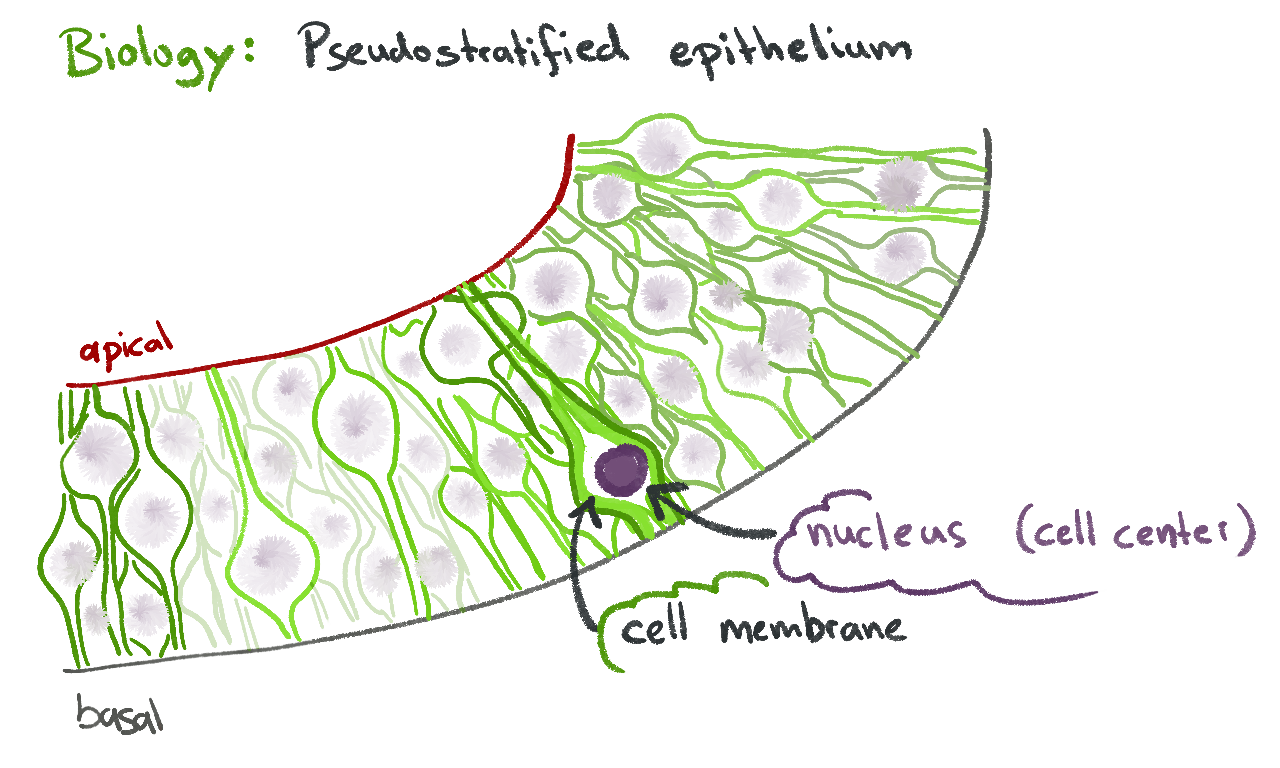 Biology: Pseudostratified epithelium
apical
nucleus (cell center)
cell membrane
basal